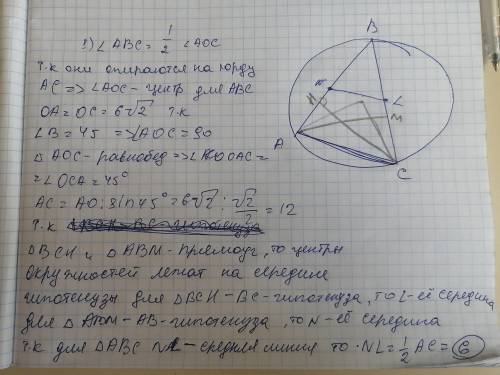 1) ∠ABC = 1/2 ∠AOC
т.к они опираются на хорду
AC => ∠AOC - центр для ABC
OA = OC = 6√2 т.к
∠B = 45 => ∠AOC = 90
△ AOC - равнобед => ∠OAC =
= ∠OCA = 45°
AC = AO : sin 45° = 6√2 : √2/2 = 12
т.к
△BCH и △ABM - прямоуг, то центры
окружностей лежат на середине
гипотенузы для △BCH - BC - гипотенуза, то L - её середина
для △ABM - AB - гипотенуза, то N - её середина
т.к для △ABC NL - средняя линия то NL = 1/2 AC = 6
B
L
M
A
C